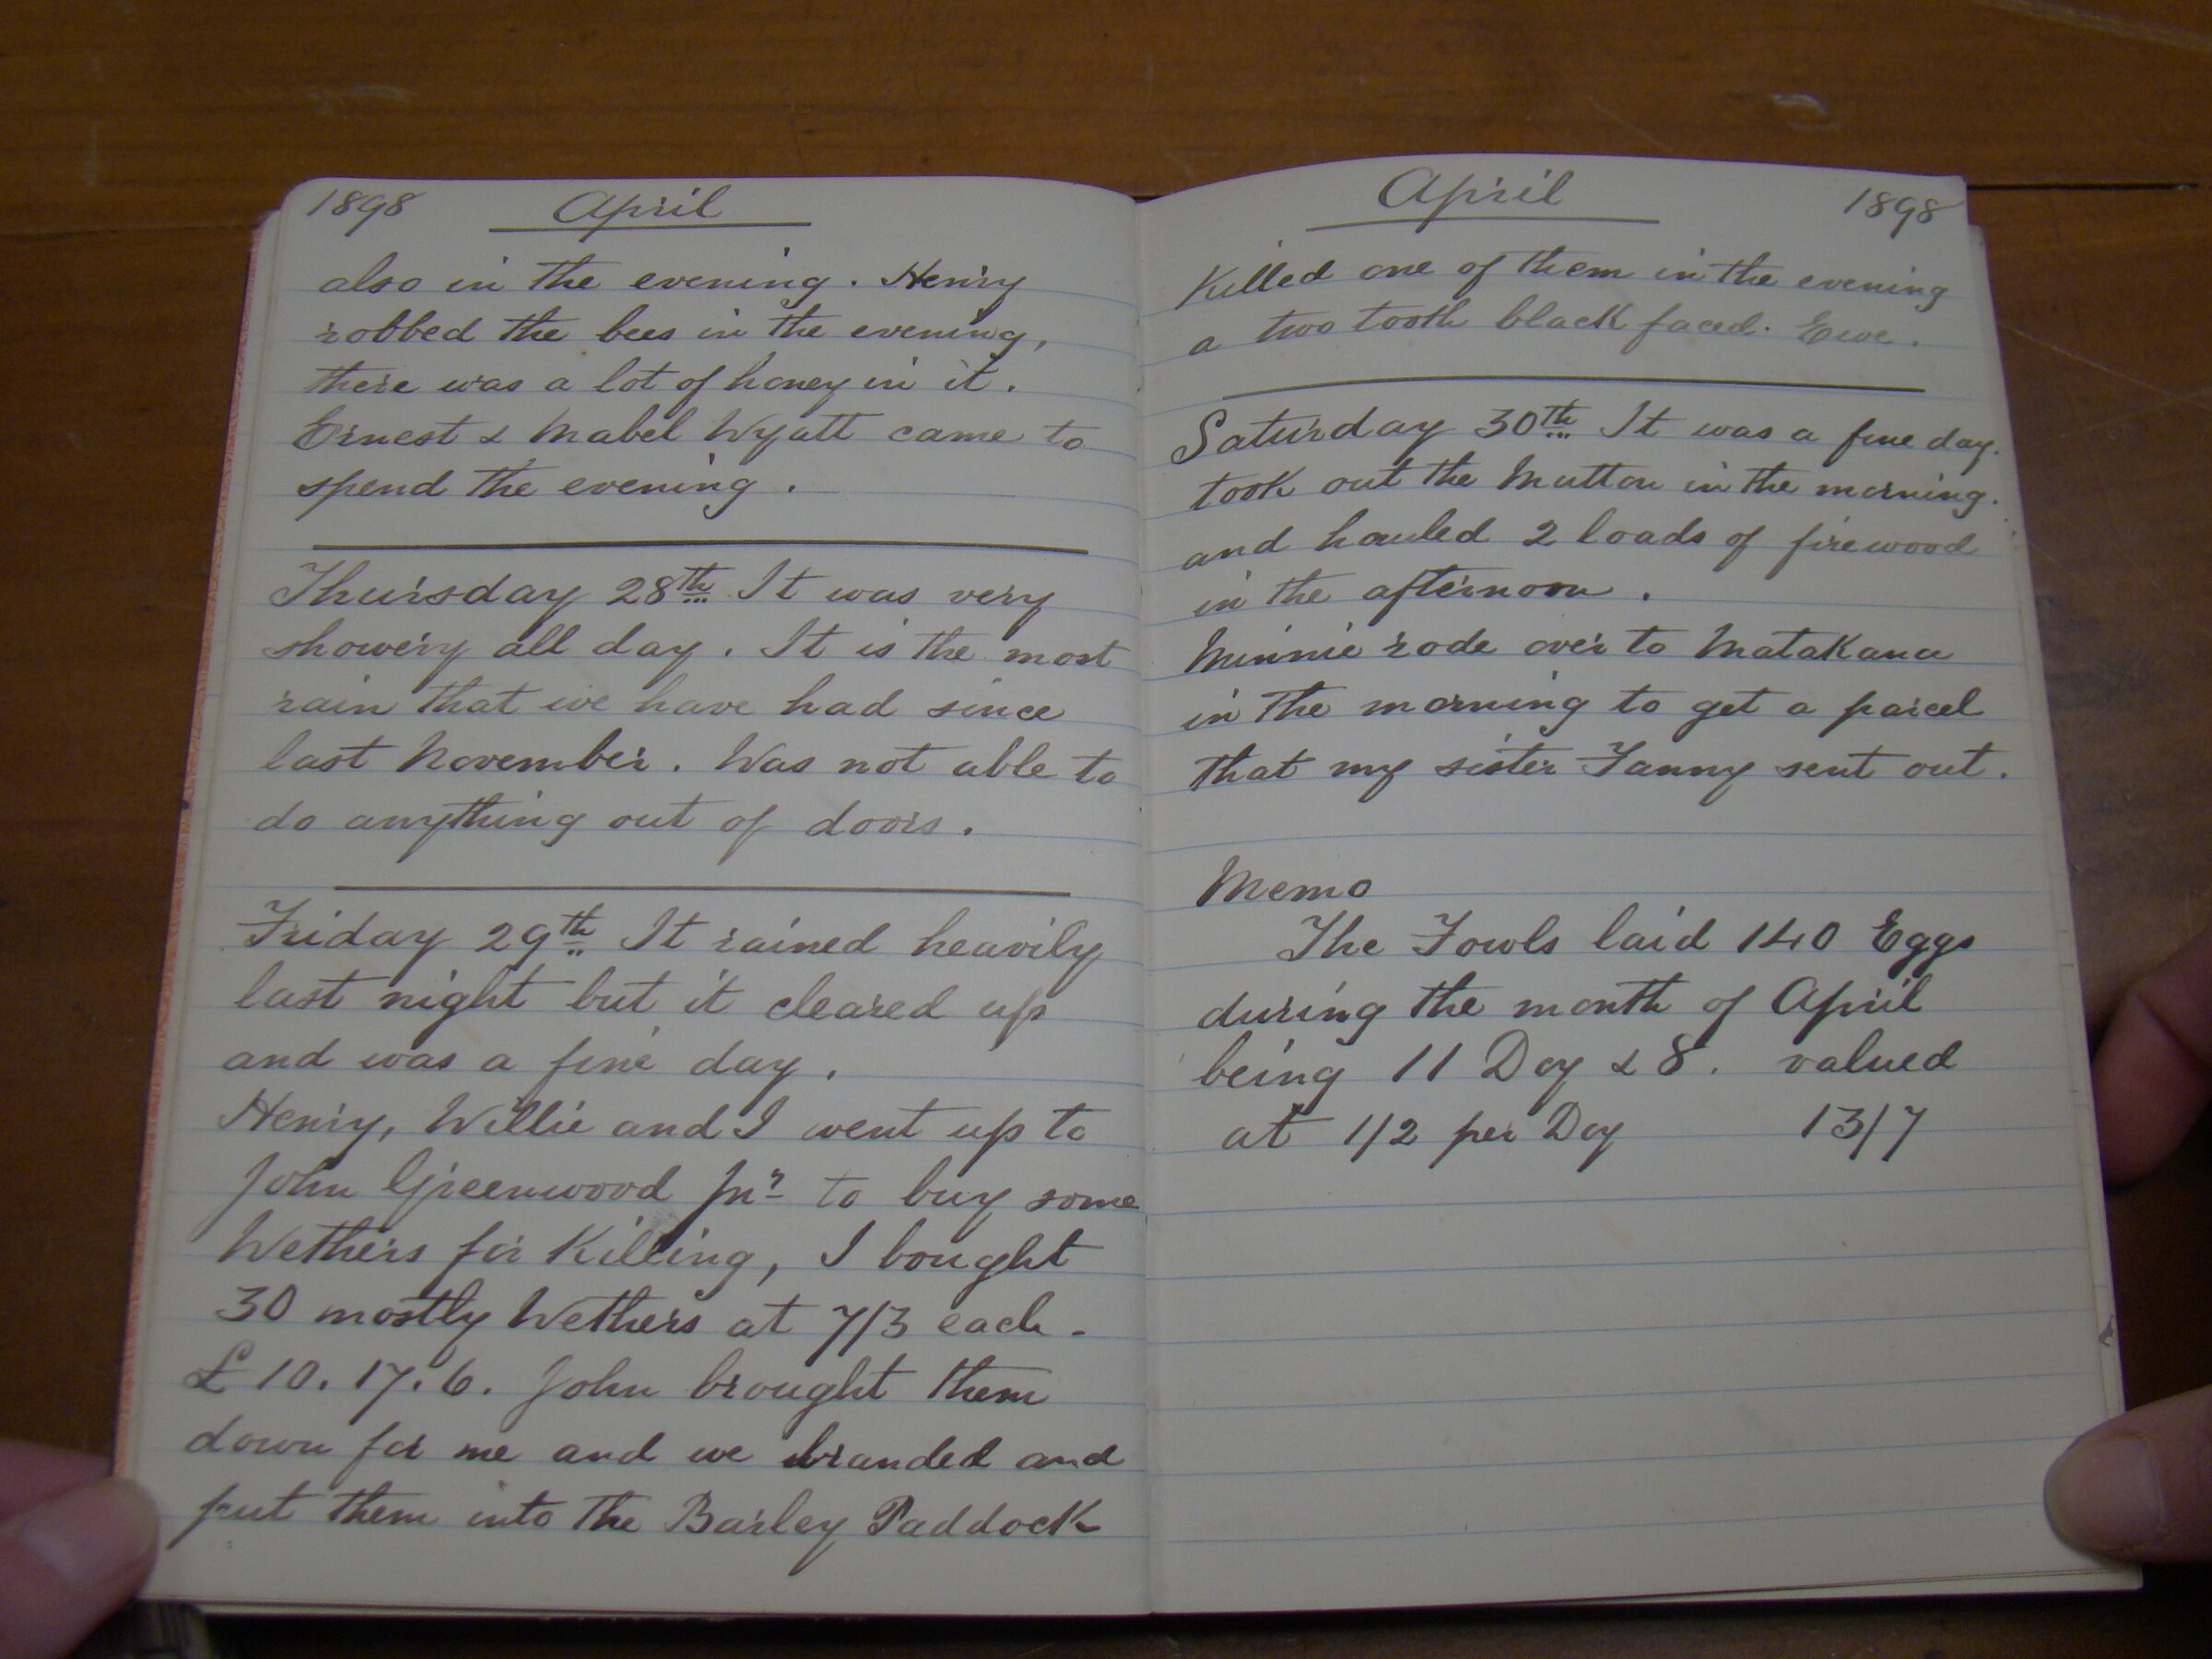 1898 April
also in the evening. Henry
robbed the bees in the evening,
there was a lot of honey in it.
Ernest & Mabel Wyatt came to
spend the evening.
Thursday 28th It was very
showery all day. It is the most
rain that we have had since
last November. Was not able to
do anything out of doors.
Friday 29th It rained heavily
last night but it cleared up
and was a fine day.
Henry, Willie and I went up to
John Greenwood Jnr to buy some
Wethers for Killing, I bought
30 mostly Wethers at 7/3 each.
£10.17.6. John brought them
down for me and we branded and
put them into the Barley Paddock
April 1898
Killed one of them in the evening
a two tooth black faced. Ewe.
Saturday 30th It was a fine day.
took out the Mutton in the morning.
and hauled 2 loads of firewood
in the afternoon.
Minnie rode over to Matakana
in the morning to get a parcel
that my sister Fanny sent out.
Memo
The Fowls laid 140 Eggs
during the month of April
being 11 Doz & 8. valued
at 1/2 per Doz 13/7